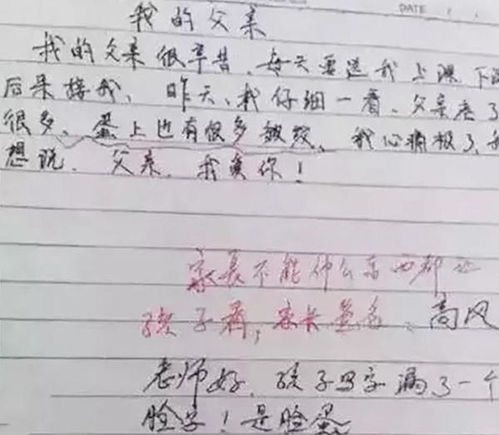 我的父亲
DATE
我的父亲很辛苦、每天要送我上课、下课
后来接我、昨天、我仔细一看、父亲老了
很多、蛋上也有很多皱纹、我心痛极了、我
想说、父亲、我爱你！
家长不能什么东西都让
孩子看，家长签名：高风
老师好、孩子写字漏了一个
脸字！是脸蛋